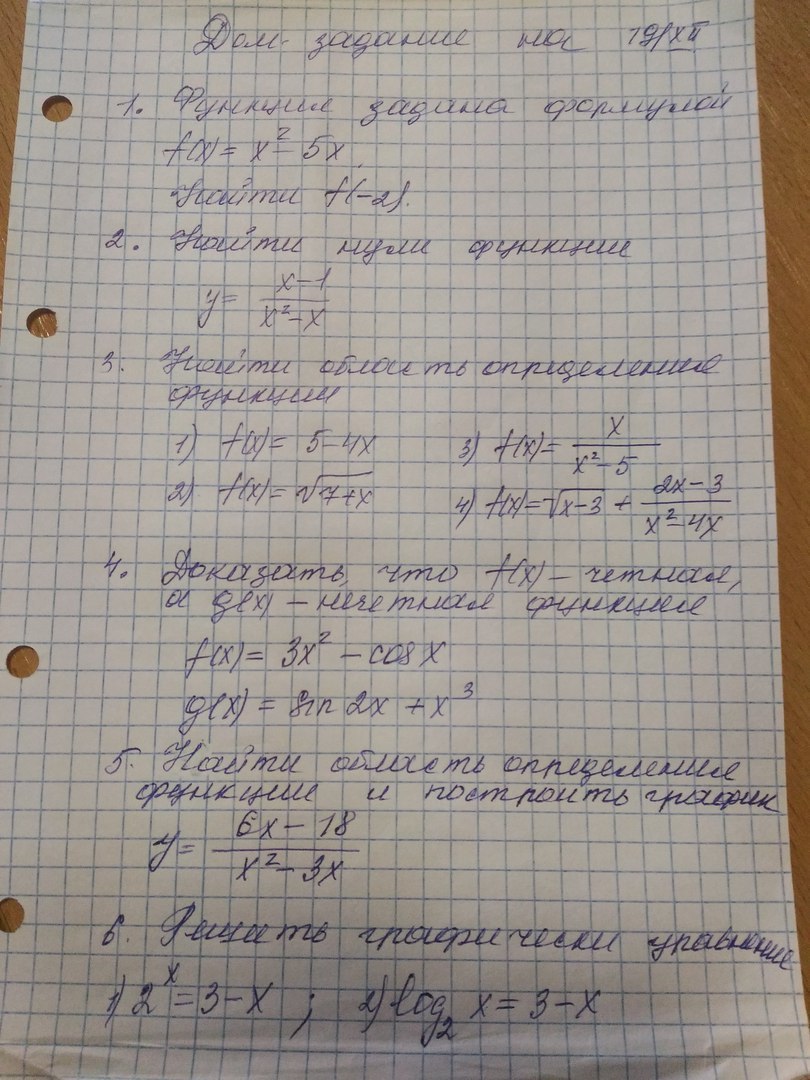 Дом. задание на 19/XII
1. Функция задана формулой
f(x) = x² - 5x.
Найти f(-2).
2. Найти нули функции
y = (x-1)/(x²-x)
3. Найти область определения
функции
1) f(x) = 5-4x 3) f(x) = x/(x²-5)
2) f(x) = √(7+x) 4) f(x) = √(x-3) + (2x-3)/(x²-4x)
4. Доказать, что f(x) - четная,
а g(x) - нечетная функция
f(x) = 3x² - cos x
g(x) = sin 2x + x³
5. Найти область определения
функции и построить график
y = (6x-18)/(x²-3x)
6. Решить графически уравнение
1) 2ˣ = 3-x ; 2) log₂ x = 3-x